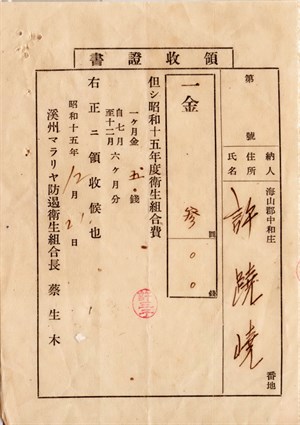 領收證書
第　號
納人 住所 氏名 海山郡中和庄 番地
許
一金 参圓〇〇錢
但シ昭和十五年度衛生組合費
一ヶ月金五・錢
自七月至十二月六ヶ月分
右正ニ領收候也
昭和十五年12月21日
溪州マラリヤ防遏衛生組合長 蔡生木